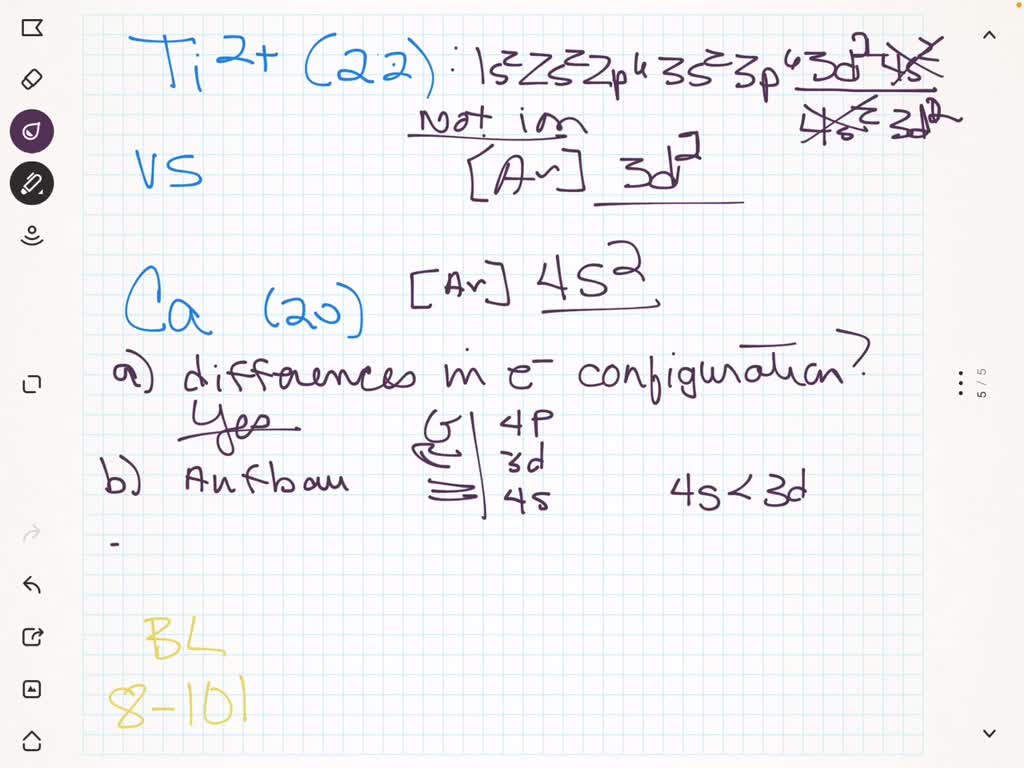 Ti²⁺ (22): 1s²2s²2p⁶3s²3p⁶3d²4s²
4s²3d²
Not ion
VS [Ar] 3d²
Ca (20) [Ar] 4s²
a) differences in e⁻ configuration?
Yes
4p
3d
b) Aufbau 4s 4s<3d
-
BL
8-101
5/5